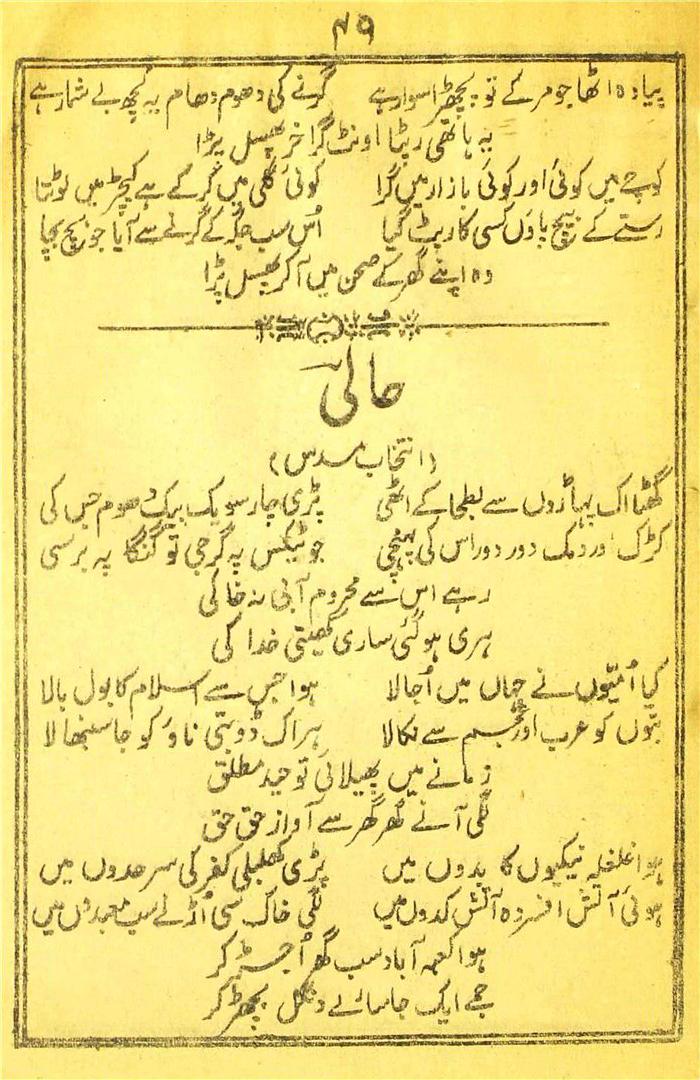 ۴۹
پیادہ اٹھا جو مر کے تو پچھڑا سوار ہے گرنے کی دھوم دھام یہ کچھ بے شمار ہے
یہ ہاتھی رپٹا اونٹ گرا خر پھسل پڑا
کوچے میں کوئی اور کوئی بازار میں گرا کوئی گلی میں گر کے ہے کیچڑ میں لوٹتا
رستے کے بیچ پاؤں کسی کا رپٹ گیا اُس سب جگہ کے گرنے سے آیا جو بچ بچا
وہ اپنے گھر کے صحن میں آ کر پھسل پڑا
حالیؔ
(انتخاب مسدس)
گھٹا اک پہاڑوں سے بطحا کے اٹھی پڑی چار سو یک بیک دھوم جس کی
کڑک اور دمک دور دور اس کی پہنچی جو ٹیگس پہ گرجی تو گنگا پہ برسی
رہے اس سے محروم آبی نہ خاکی
ہری ہو گئی ساری کھیتی خدا کی
کیا اُمیّوں نے جہاں میں اُجالا ہوا جس سے اسلام کا بول بالا
بتوں کو عرب اور عجم سے نکالا ہر اک ڈوبتی ناؤ کو جا سنبھالا
زمانے میں پھیلائی توحید مطلق
لگی آنے گھر گھر سے آواز حق حق
ہوا غلغلہ نیکیوں کا بدوں میں پڑی کھلبلی کفر کی سرحدوں میں
ہوئی آتش افسردہ آتش کدوں میں لگی خاک سی اُڑنے سب معبدوں میں
ہوا کعبہ آباد سب گھر اُجڑ کر
جمے ایک جا سارے دنگل بچھڑ کر